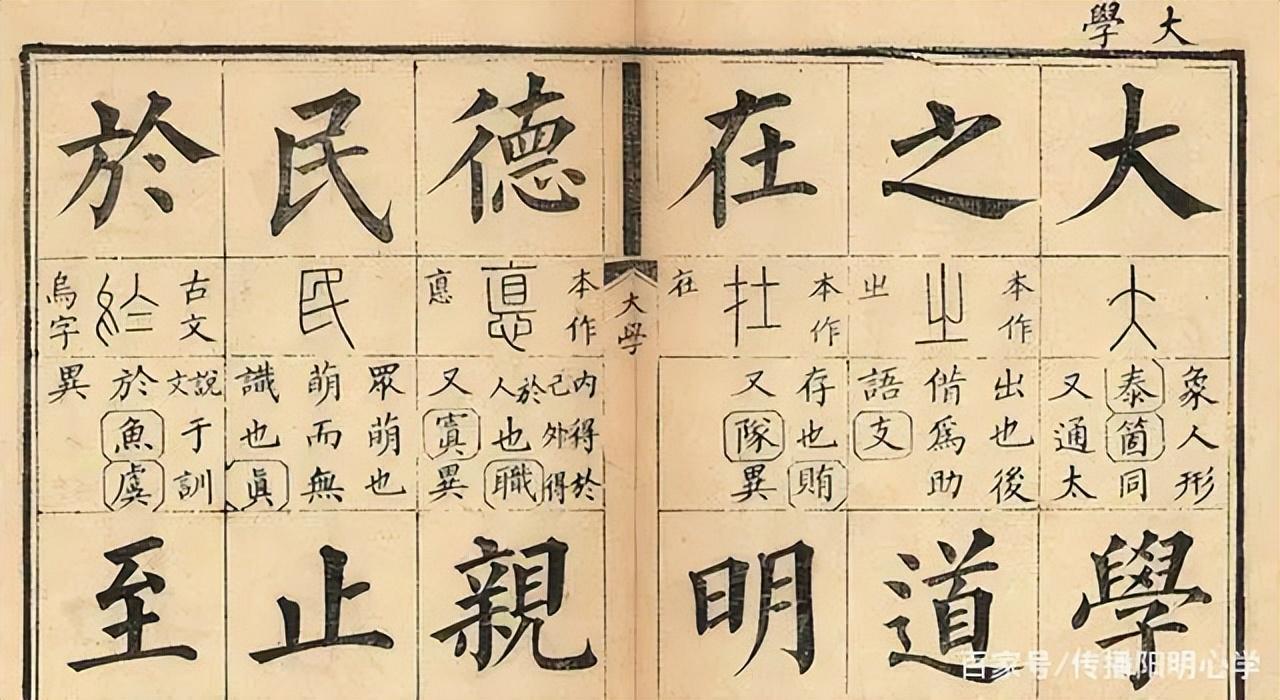 大學
大
象人形
泰箇同
又通太
學
之
本作
㞢
出也後
借爲助
語支
道
在
本作
在
存也賄
又隊異
明
大學
德
本作
悳
内得於
己外得
於人也職
又寘異
親
民
眾萌也
萌而無
識也眞
止
於
古文
烏字
說文于訓
於魚虞
異
至
百家号/传播阳明心学